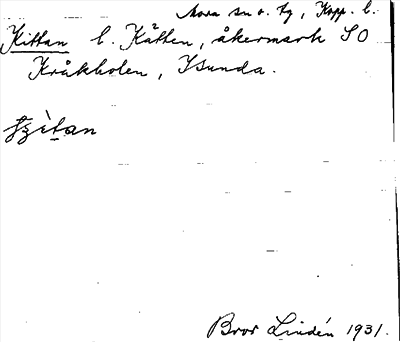 Mora sn o. tg, Kopp. l.
Kittan l. Kätten, åkermark SO
Kråkholen, Isunda.
Bror Lindén 1931.